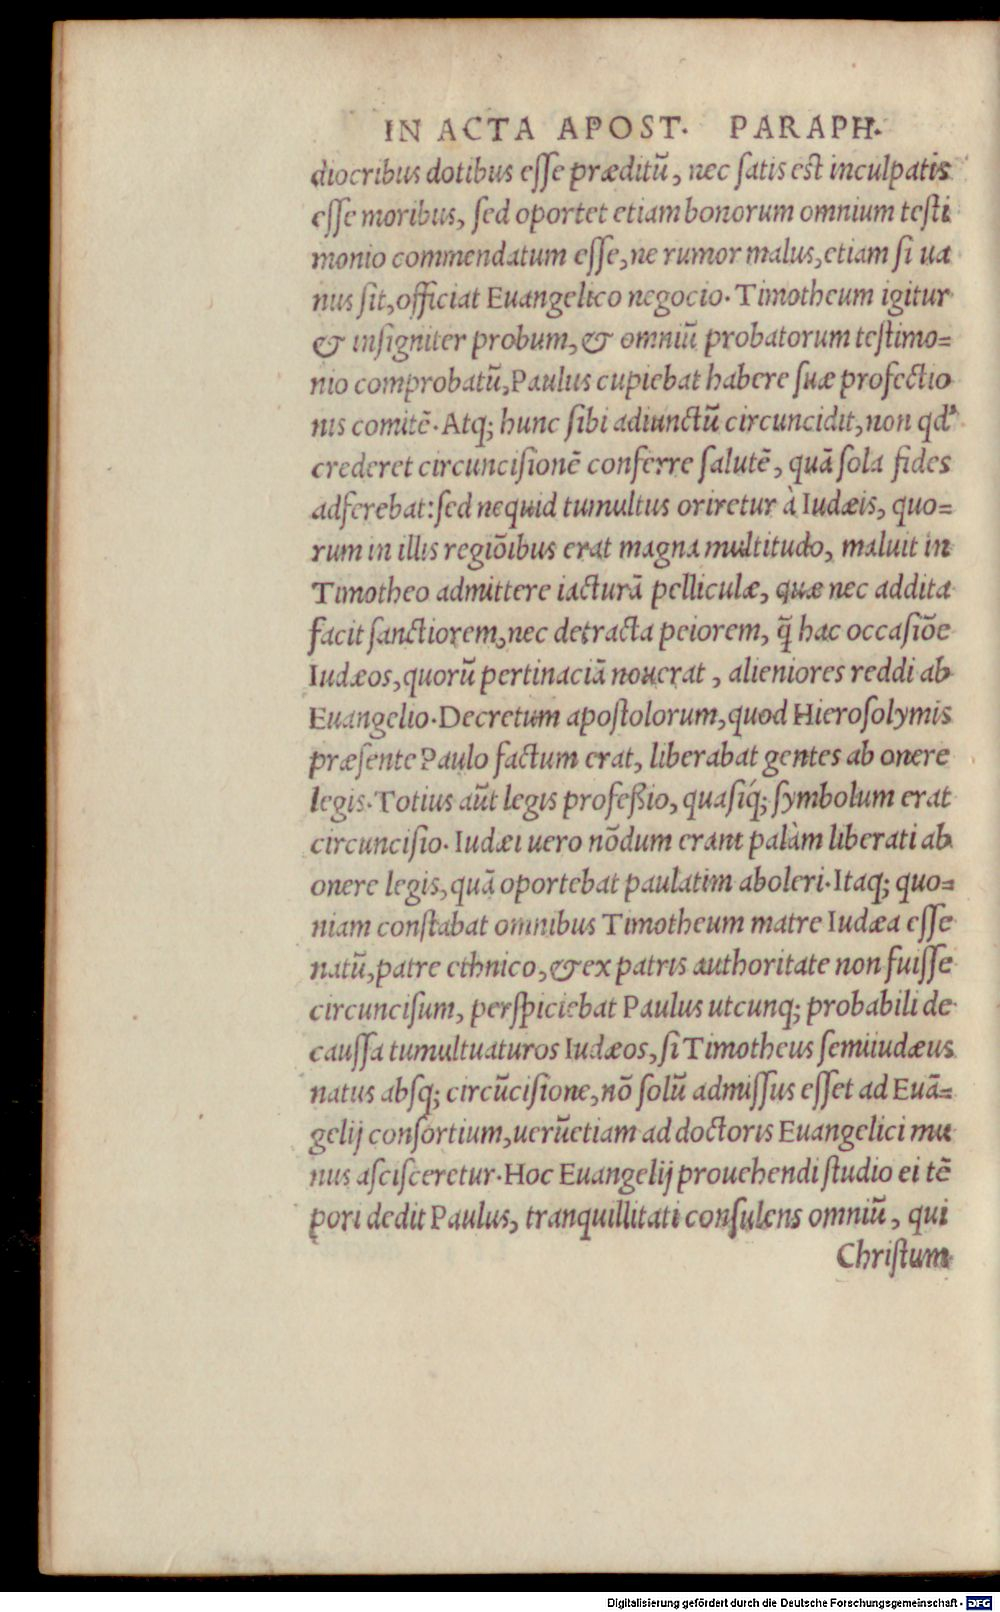 IN ACTA APOST. PARAPH.
diocribus dotibus esse præditũ, nec satis est inculpatis
esse moribus, sed oportet etiam bonorum omnium testi
monio commendatum esse, ne rumor malus, etiam si ua
nus sit, officiat Euangelico negocio. Timotheum igitur
& insigniter probum, & omniũ probatorum testimo=
nio comprobatũ, Paulus cupiebat habere suæ profectio
nis comitẽ. Atq; hunc sibi adiunctũ circuncidit, non qd'
crederet circuncisionẽ conferre salutẽ, quã sola fides
adferebat: sed nequid tumultus oriretur à Iudæis, quo=
rum in illis regiõibus erat magna multitudo, maluit in
Timotheo admittere iacturã pelliculæ, quæ nec addita
facit sanctiorem, nec detracta peiorem, q̃ hac occasiõe
Iudæos, quorũ pertinaciã nouerat, alieniores reddi ab
Euangelio. Decretum apostolorum, quod Hierosolymis
præsente Paulo factum erat, liberabat gentes ab onere
legis. Totius aũt legis profeßio, quasiq́; symbolum erat
circuncisio. Iudæi uero nõdum erant palàm liberati ab
onere legis, quã oportebat paulatim aboleri. Itaq; quo=
niam constabat omnibus Timotheum matre Iudæa esse
natũ, patre ethnico, & ex patris authoritate non fuisse
circuncisum, perspiciebat Paulus utcunq; probabili de
caussa tumultuaturos Iudæos, si Timotheus semiiudæus
natus absq; circũcisione, nõ solũ admissus esset ad Euã=
gelij consortium, uerũetiam ad doctoris Euangelici mu
nus ascisceretur. Hoc Euangelij prouehendi studio ei tẽ
pori dedit Paulus, tranquillitati consulens omniũ, qui
Christum
Digitalisierung gefördert durch die Deutsche Forschungsgemeinschaft - DFG